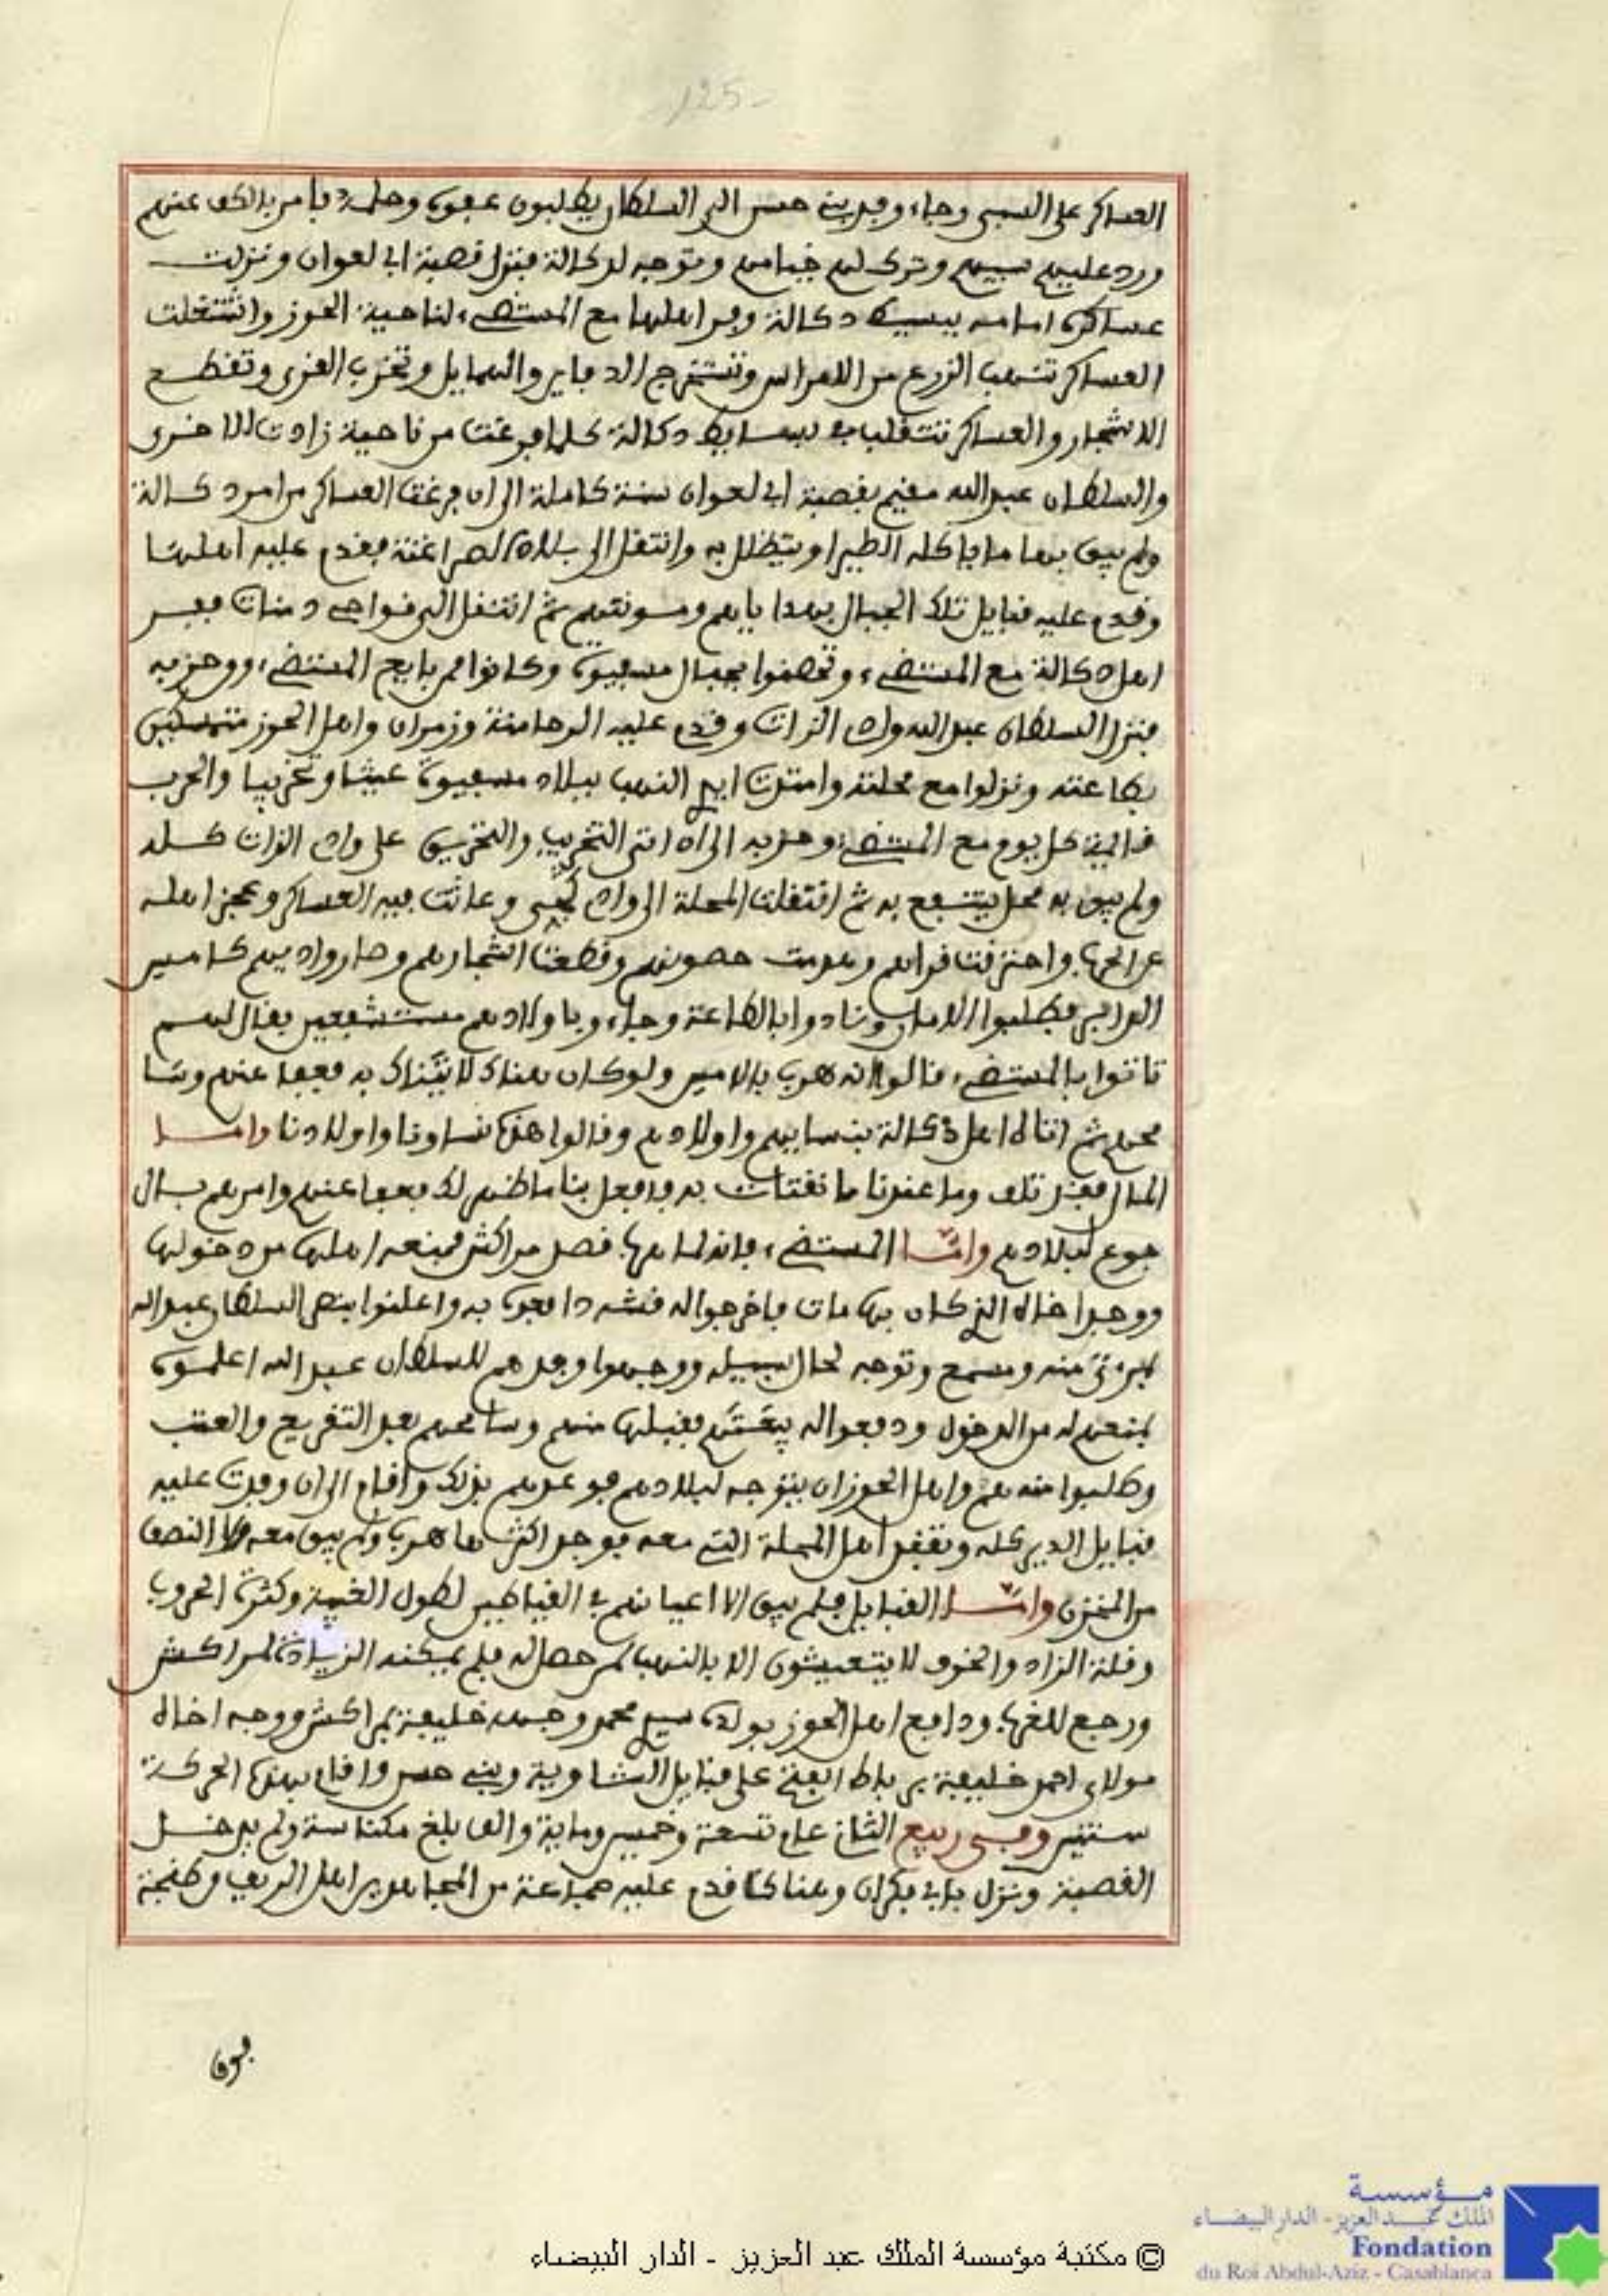 -125-
العساكر على السبي وجاء وفد بني حسن الى السلطان يطلبون عفوه وحلمه فامر بالكف عنهم
ورد عليهم سبيهم وترك لهم خيامهم وتوجه لدكالة فنزل قصبة ابي لعوان ونزلت
عساكره امامه ببسيط دكالة وفر اهلها مع المستضيء لناحية الحوز واشتغلت
العساكر تنهب الزرع من الامراس وتستخرج الدفاين والهمايل وتخرب القرى وتقطع
الاشجار والعساكر تتقلب في بسايط دكالة كلما فرغت من ناحية زادت للاخرى
والسلطان عبد الله مقيم بقصبة ابي لعوان سنة كاملة الى ان فرغت العساكر من امر دكالة
ولم يبق بها ما ياكله الطير او يتظلل به وانتقل الى بلاد السراغنة فقدم عليه اهلها
وقدم عليه قبايل تلك الجبال بهداياهم ومونتهم ثم انتقل الى نواحي دمنات ففر
اهل دكالة مع المستضيء وتحصنوا بجبال مسفيوة وكانوا ممن بايع المستضيء ووحزبه
فنزل السلطان عبد الله واد الزات وقدم عليه الرحامنة وزمران واهل الحوز متمسكين
بطاعته ونزلوا مع محلته وامتدت ايدي النهب ببلاد مسفيوة عيثا وتخريبا والحرب
قايمة كل يوم مع المستضيء وحزبه الى ان اتى التخريب والتحريق على واد الزات كله
ولم يبق به محل ينتفع به ثم انتقلت المحلة الى واد كجي وعاثت فيه العساكر وعجز اهله
عن الحرب واحترقت قراهم وهدمت حصونهم وقطعت اشجارهم وصار واديهم كامس
الدابر فطلبوا الامان ونادوا بالطاعة وجاءوا باولادهم مستشفعين فقال لهم
تاتوا بالمستضيء قالوا انه هرب يا الامير ولو كان هناك لاتيناك به فعفا عنهم وسا
محهم ثم اتاه اهل دكالة بنسايهم واولادهم وقالوا هذه نساونا واولادنا واما
المال فقد تلف وما عندنا ما نقتات به فافعل بنا ما ظهر لك فعفا عنهم وامرهم بالر
جوع لبلادهم واما المستضيء فانه لما هرب قصد مراكش فمنعه اهلها من دخولها
ووجد اخاه الذي كان بها مات فاخرجوا له قشه دافعوه به واعلنوا بنصر السلطان عبد الله
بمرءى منه ومسمع وتوجه لحال سبيله ووجهوا وفدهم للسلطان عبد الله اعلموه
بمنعهم له من الدخول ودفعوا له بيعتهم فقبلها منهم وسامحهم بعد التقريع والعتب
وطلبوا منه هم واهل الحوز ان يتوجه لبلادهم فوعدهم بذلك واقام الى ان وفدت عليه
قبايل الدير كله وتفقد اهل المحلة التي معه فوجد اكثرها هرب ولم يبق معه الا النصف
من المخزن واما القبايل فلم يبق الا اعيانهم في القياطين لطول الغيبة وكثرة الحروب
وقلة الزاد والخوف لا يتعيشون الا بالنهب لمن حصل له فلم يمكنه الزيادة لمراكش
ورجع للغرب ودافع اهل الحوز بولده سيدي محمد وجهه خليفة بمراكش ووجه اخاه
مولاي احمد خليفة برباط الفتح على قبايل الشاوية وبني حسن واقام بهذه الحركة
سنتين وفي ربيع الثاني عام تسعة وخمسين وماية والف بلغ مكناسة ولم يدخل
القصبة ونزل بابي فكران وهناك قدم عليه جماعة من المجاهدين اهل الريف وطنجة
مؤسسة
الملك عبد العزيز - الدار البيضاء
Fondation
du Roi Abdul-Aziz - Casablanca
© مكتبة مؤسسة الملك عبد العزيز - الدار البيضاء